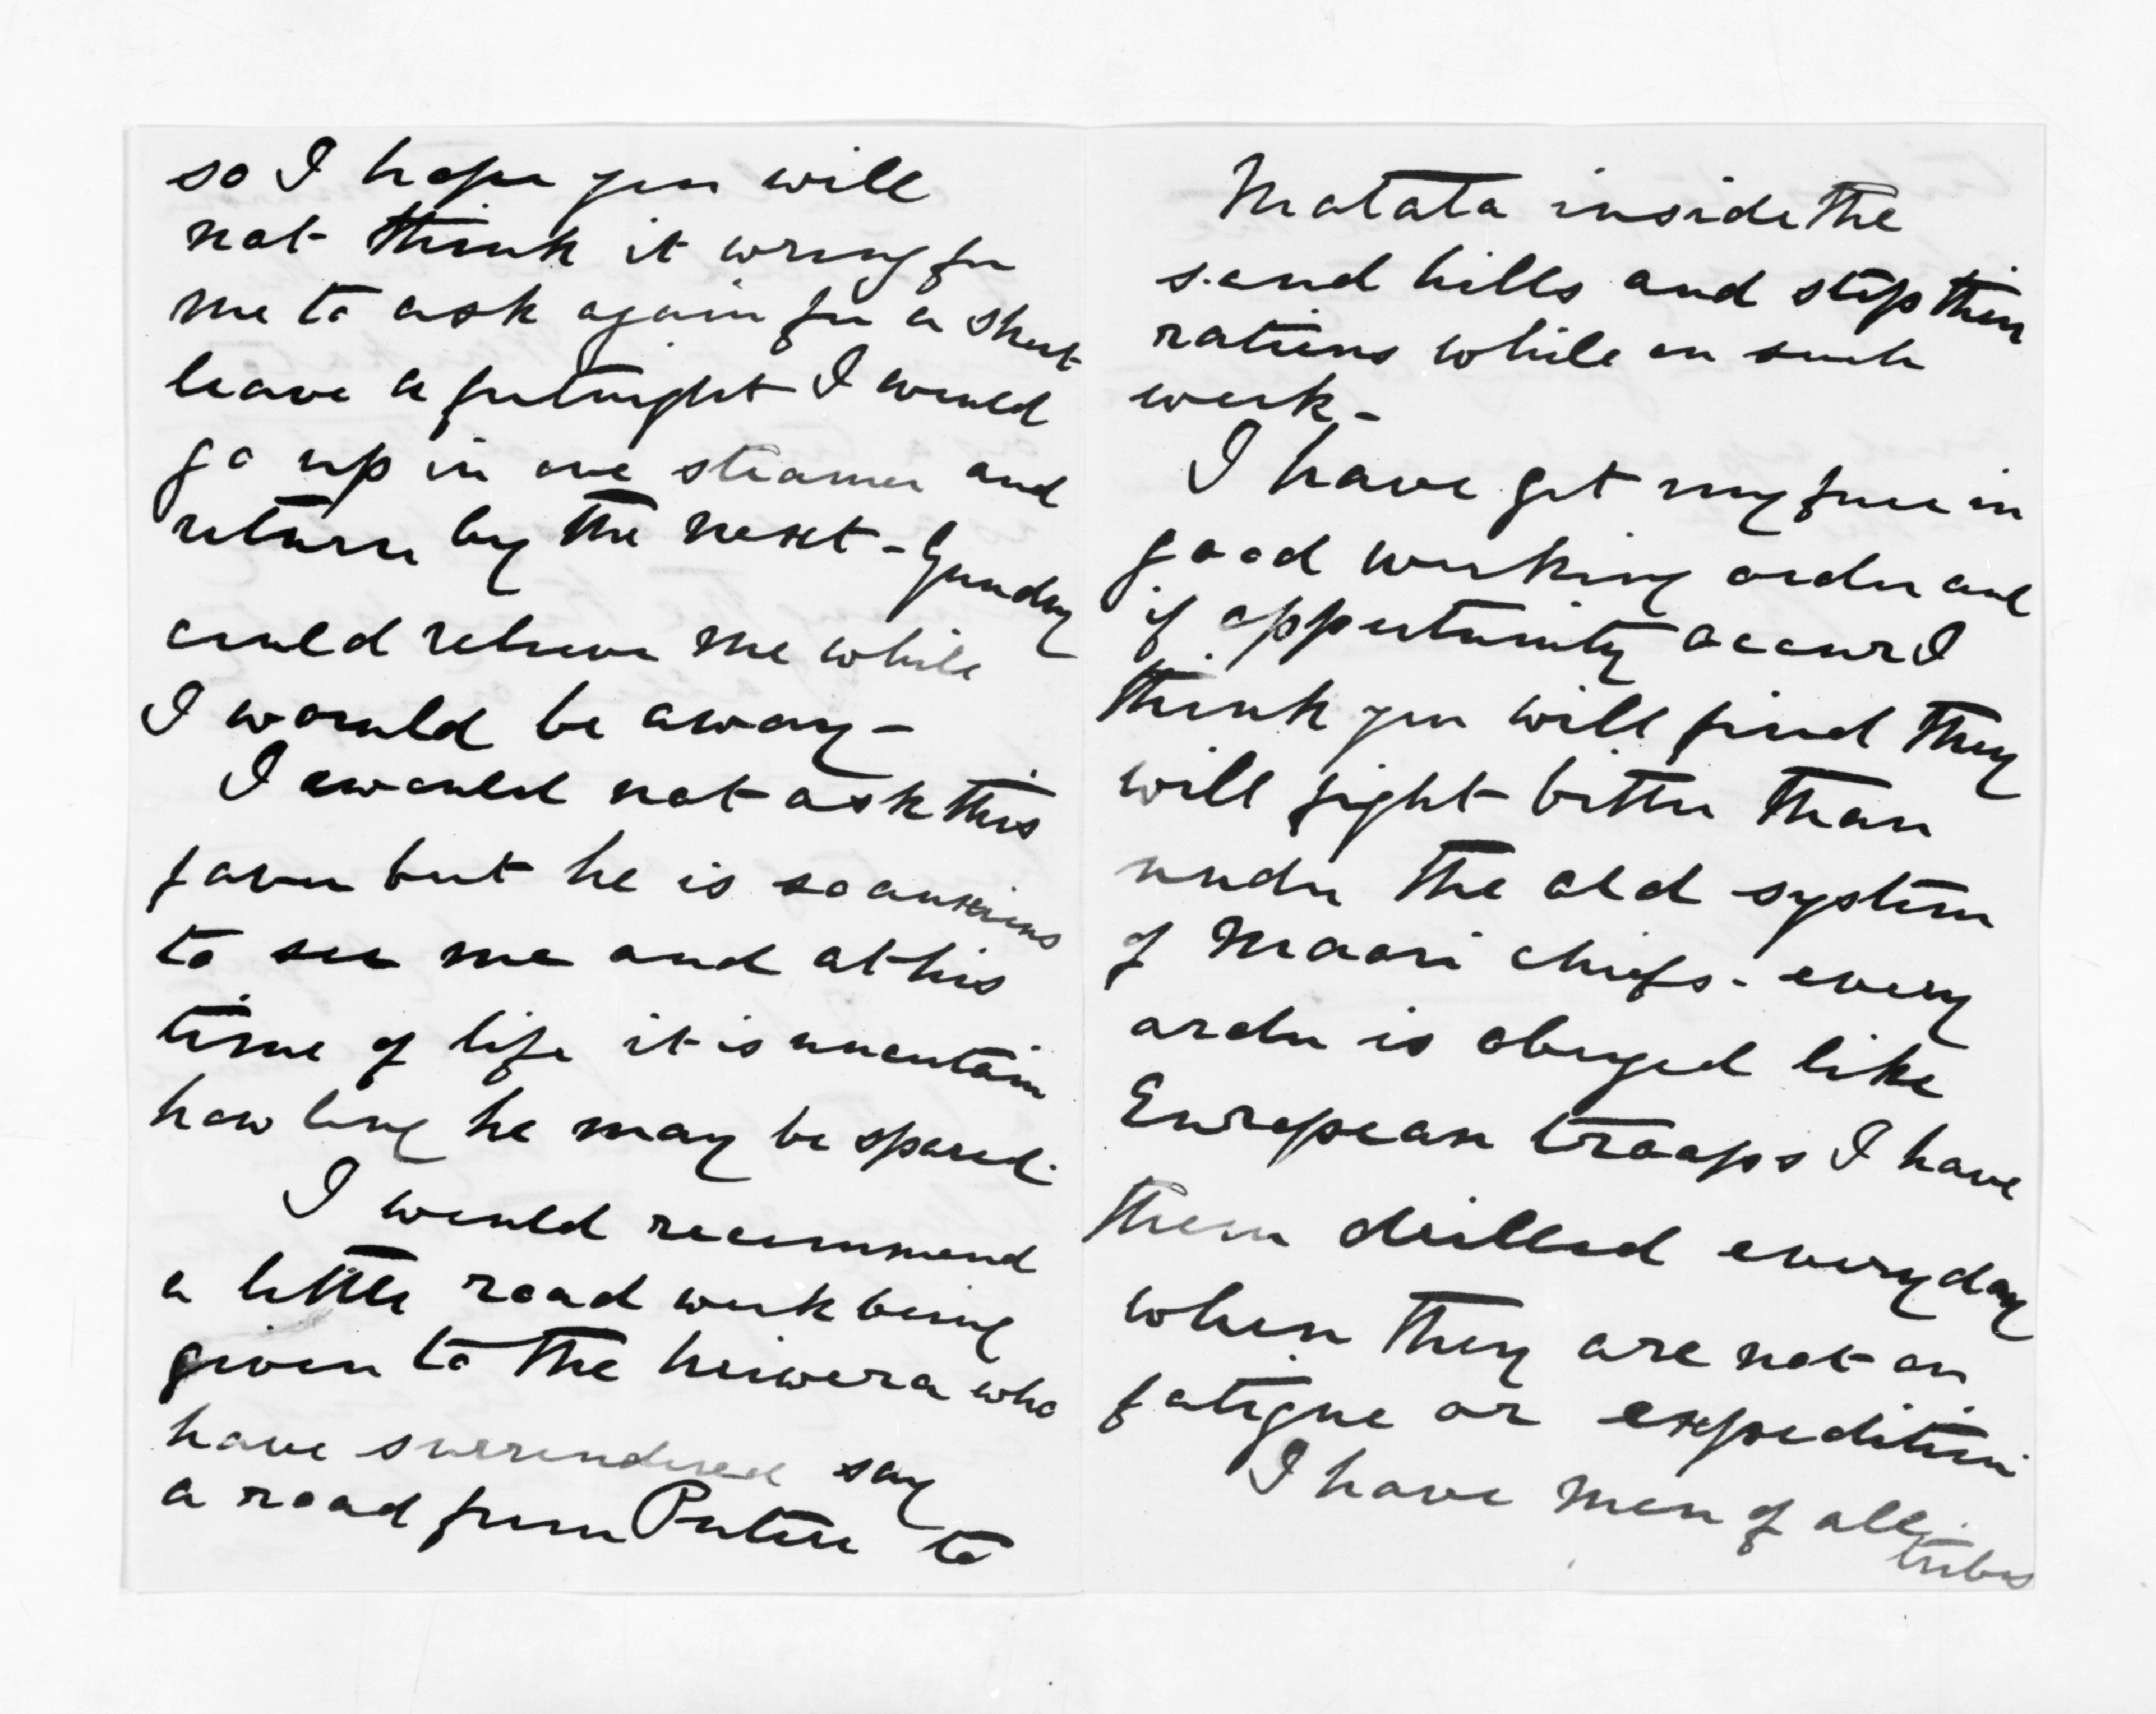 so I hope you will
not think it wrong for
me to ask again for a short
leave a fortnight I would
go up in one steamer and
return by the next - Gundry
could relieve me while
I would be away -
I would not ask this
favor but he is so anxious
to see me and at his
time of life it is uncertain
how long he may be spared.
I would recommend
a little road work being
given to the Uriwera who
have surrendered say
a road from Putere to
Matata inside the
sand hills and stop their
rations while on such
work -
I have got my force in
good working order and
if opportunity occurs I
think you will find they
will fight better than
under the old system
of Maori chiefs - every
order is obeyed like
European troops I have
them drilled everyday
when they are not on
fatigue or expedition
I have men of all
tribes